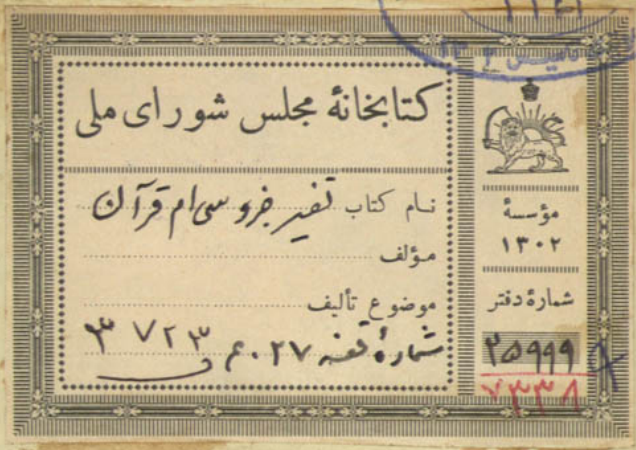 کتابخانهٔ مجلس شورای ملی
نام کتاب تفسیر جزو سی ام قرآن
مؤلف
موضوع تألیف
شمارهٔ قفسه
۳۷۲۳
مؤسسهٔ
۱۳۰۲
شمارهٔ دفتر
۲۵۹۹۹
۷۳۳۸